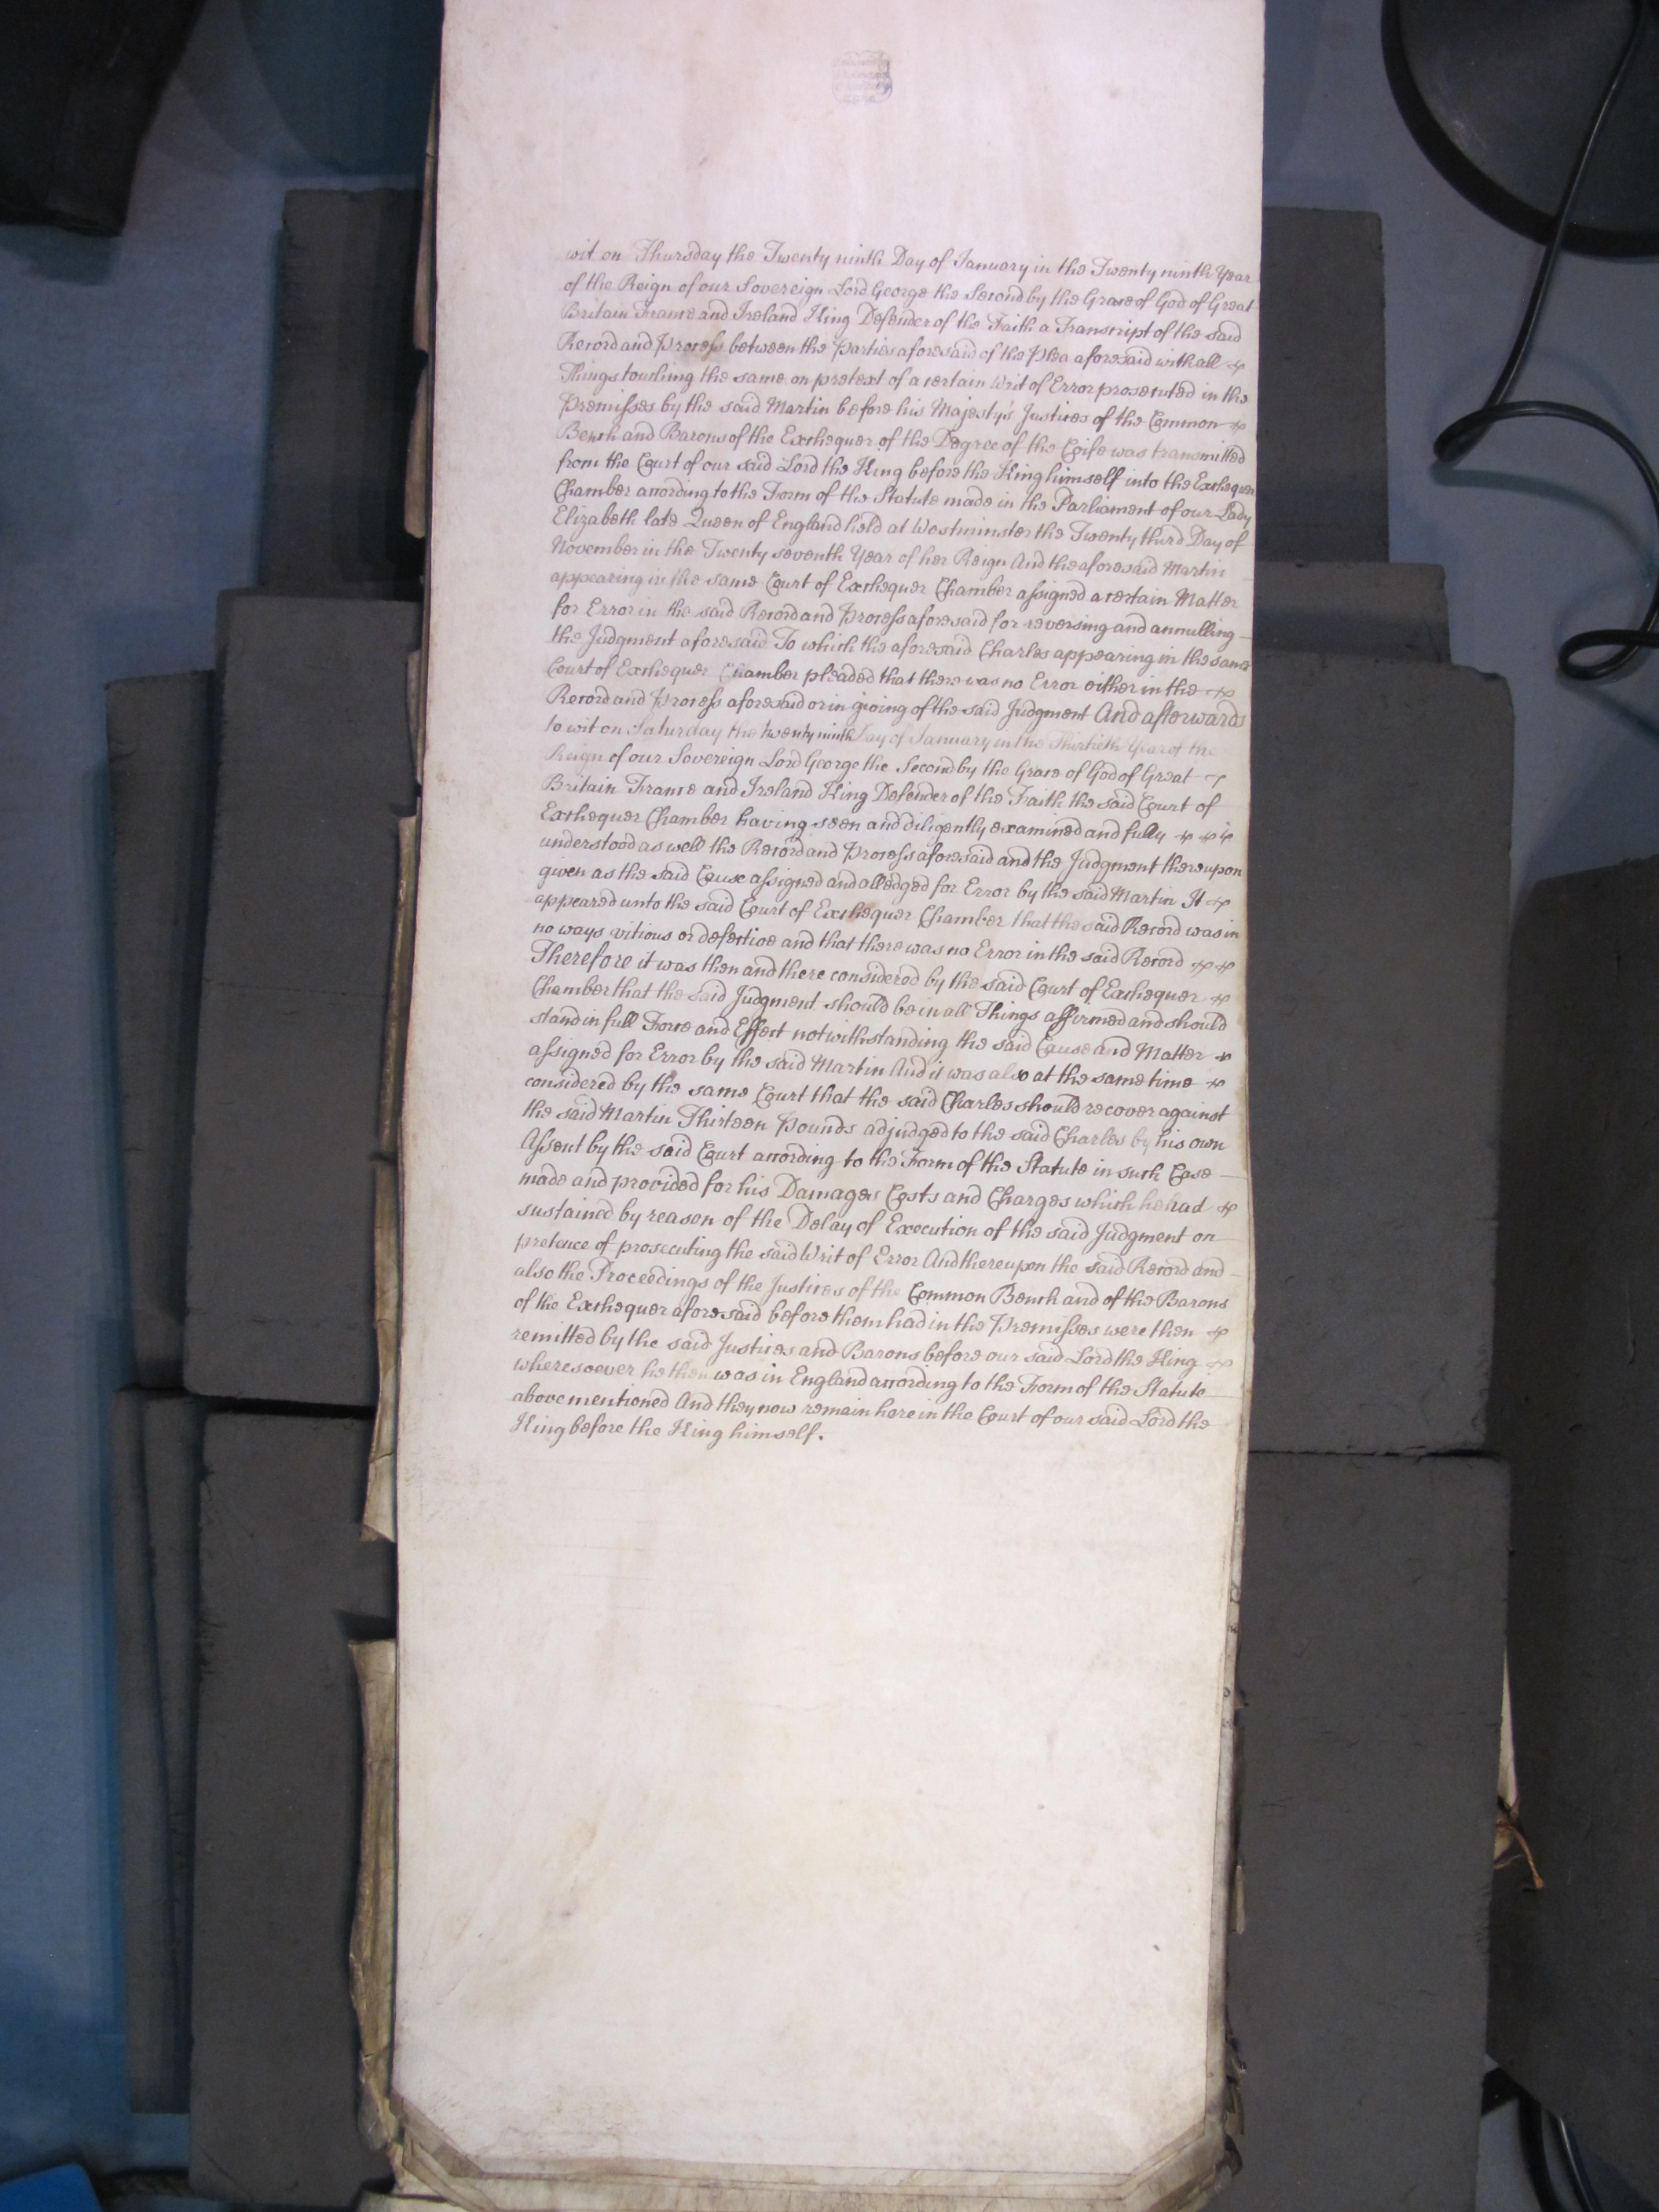 wit on Thursday the Twenty ninth Day of January in the Twenty ninth Year
of the Reign of our Sovereign Lord George the Second by the Grace of God of Great
Britain France and Ireland King Defender of the Faith a Transcript of the said
Record and Process between the Parties aforesaid of the Plea aforesaid with all
Things touching the same on pretext of a certain Writ of Error prosecuted in the
Premisses by the said Martin before his Majesty's Justices of the Common
Bench and Barons of the Exchequer of the Degree of the Coife was transmitted
from the Court of our said Lord the King before the King himself into the Exchequer
Chamber according to the Form of the Statute made in the Parliament of our Lady
Elizabeth late Queen of England held at Westminster the Twenty third Day of
November in the Twenty seventh Year of her Reign And the aforesaid Martin
appearing in the same Court of Exchequer Chamber assigned a certain Matter
for Error in the said Record and Process aforesaid for reversing and annulling
the Judgment aforesaid To which the aforesaid Charles appearing in the same
Court of Exchequer Chamber pleaded that there was no Error either in the
Record and Process aforesaid or in giving of the said Judgment And afterwards
to wit on Saturday the twenty ninth Day of January in the Thirtieth Year of the
Reign of our Sovereign Lord George the Second by the Grace of God of Great
Britain France and Ireland King Defender of the Faith the said Court of
Exchequer Chamber having seen and diligently examined and fully
understood as well the Record and Process aforesaid and the Judgment thereupon
given as the said Cause assigned and alledged for Error by the said Martin It
appeared unto the said Court of Exchequer Chamber that the said Record was in
no ways vitious or defective and that there was no Error in the said Record
Therefore it was then and there considered by the said Court of Exchequer
Chamber that the said Judgment should be in all Things affirmed and should
stand in full Force and Effect notwithstanding the said Cause and Matter
assigned for Error by the said Martin And it was also at the same time
considered by the same Court that the said Charles should recover against
the said Martin Thirteen Pounds adjudged to the said Charles by his own
Assent by the said Court according to the Form of the Statute in such Case
made and provided for his Damages Costs and Charges which he had
sustained by reason of the Delay of Execution of the said Judgment on
pretence of prosecuting the said Writ of Error And thereupon the said Record and
also the Proceedings of the Justices of the Common Bench and of the Barons
of the Exchequer aforesaid before them had in the Premisses were then
remitted by the said Justices and Barons before our said Lord the King
wheresoever he then was in England according to the Form of the Statute
above mentioned And they now remain here in the Court of our said Lord the
King before the King himself.